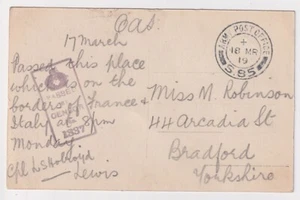 OAS
17 March
Passed this place
which is on the
borders of France &
Italy at 8pm
Monday.
Cpl LS Holroyd
Lewis
PASSED
CENSOR
1557
ARMY POST OFFICE
18 MR
19
S.85
Miss M. Robinson
44 Arcadia St
Bradford
Yorkshire